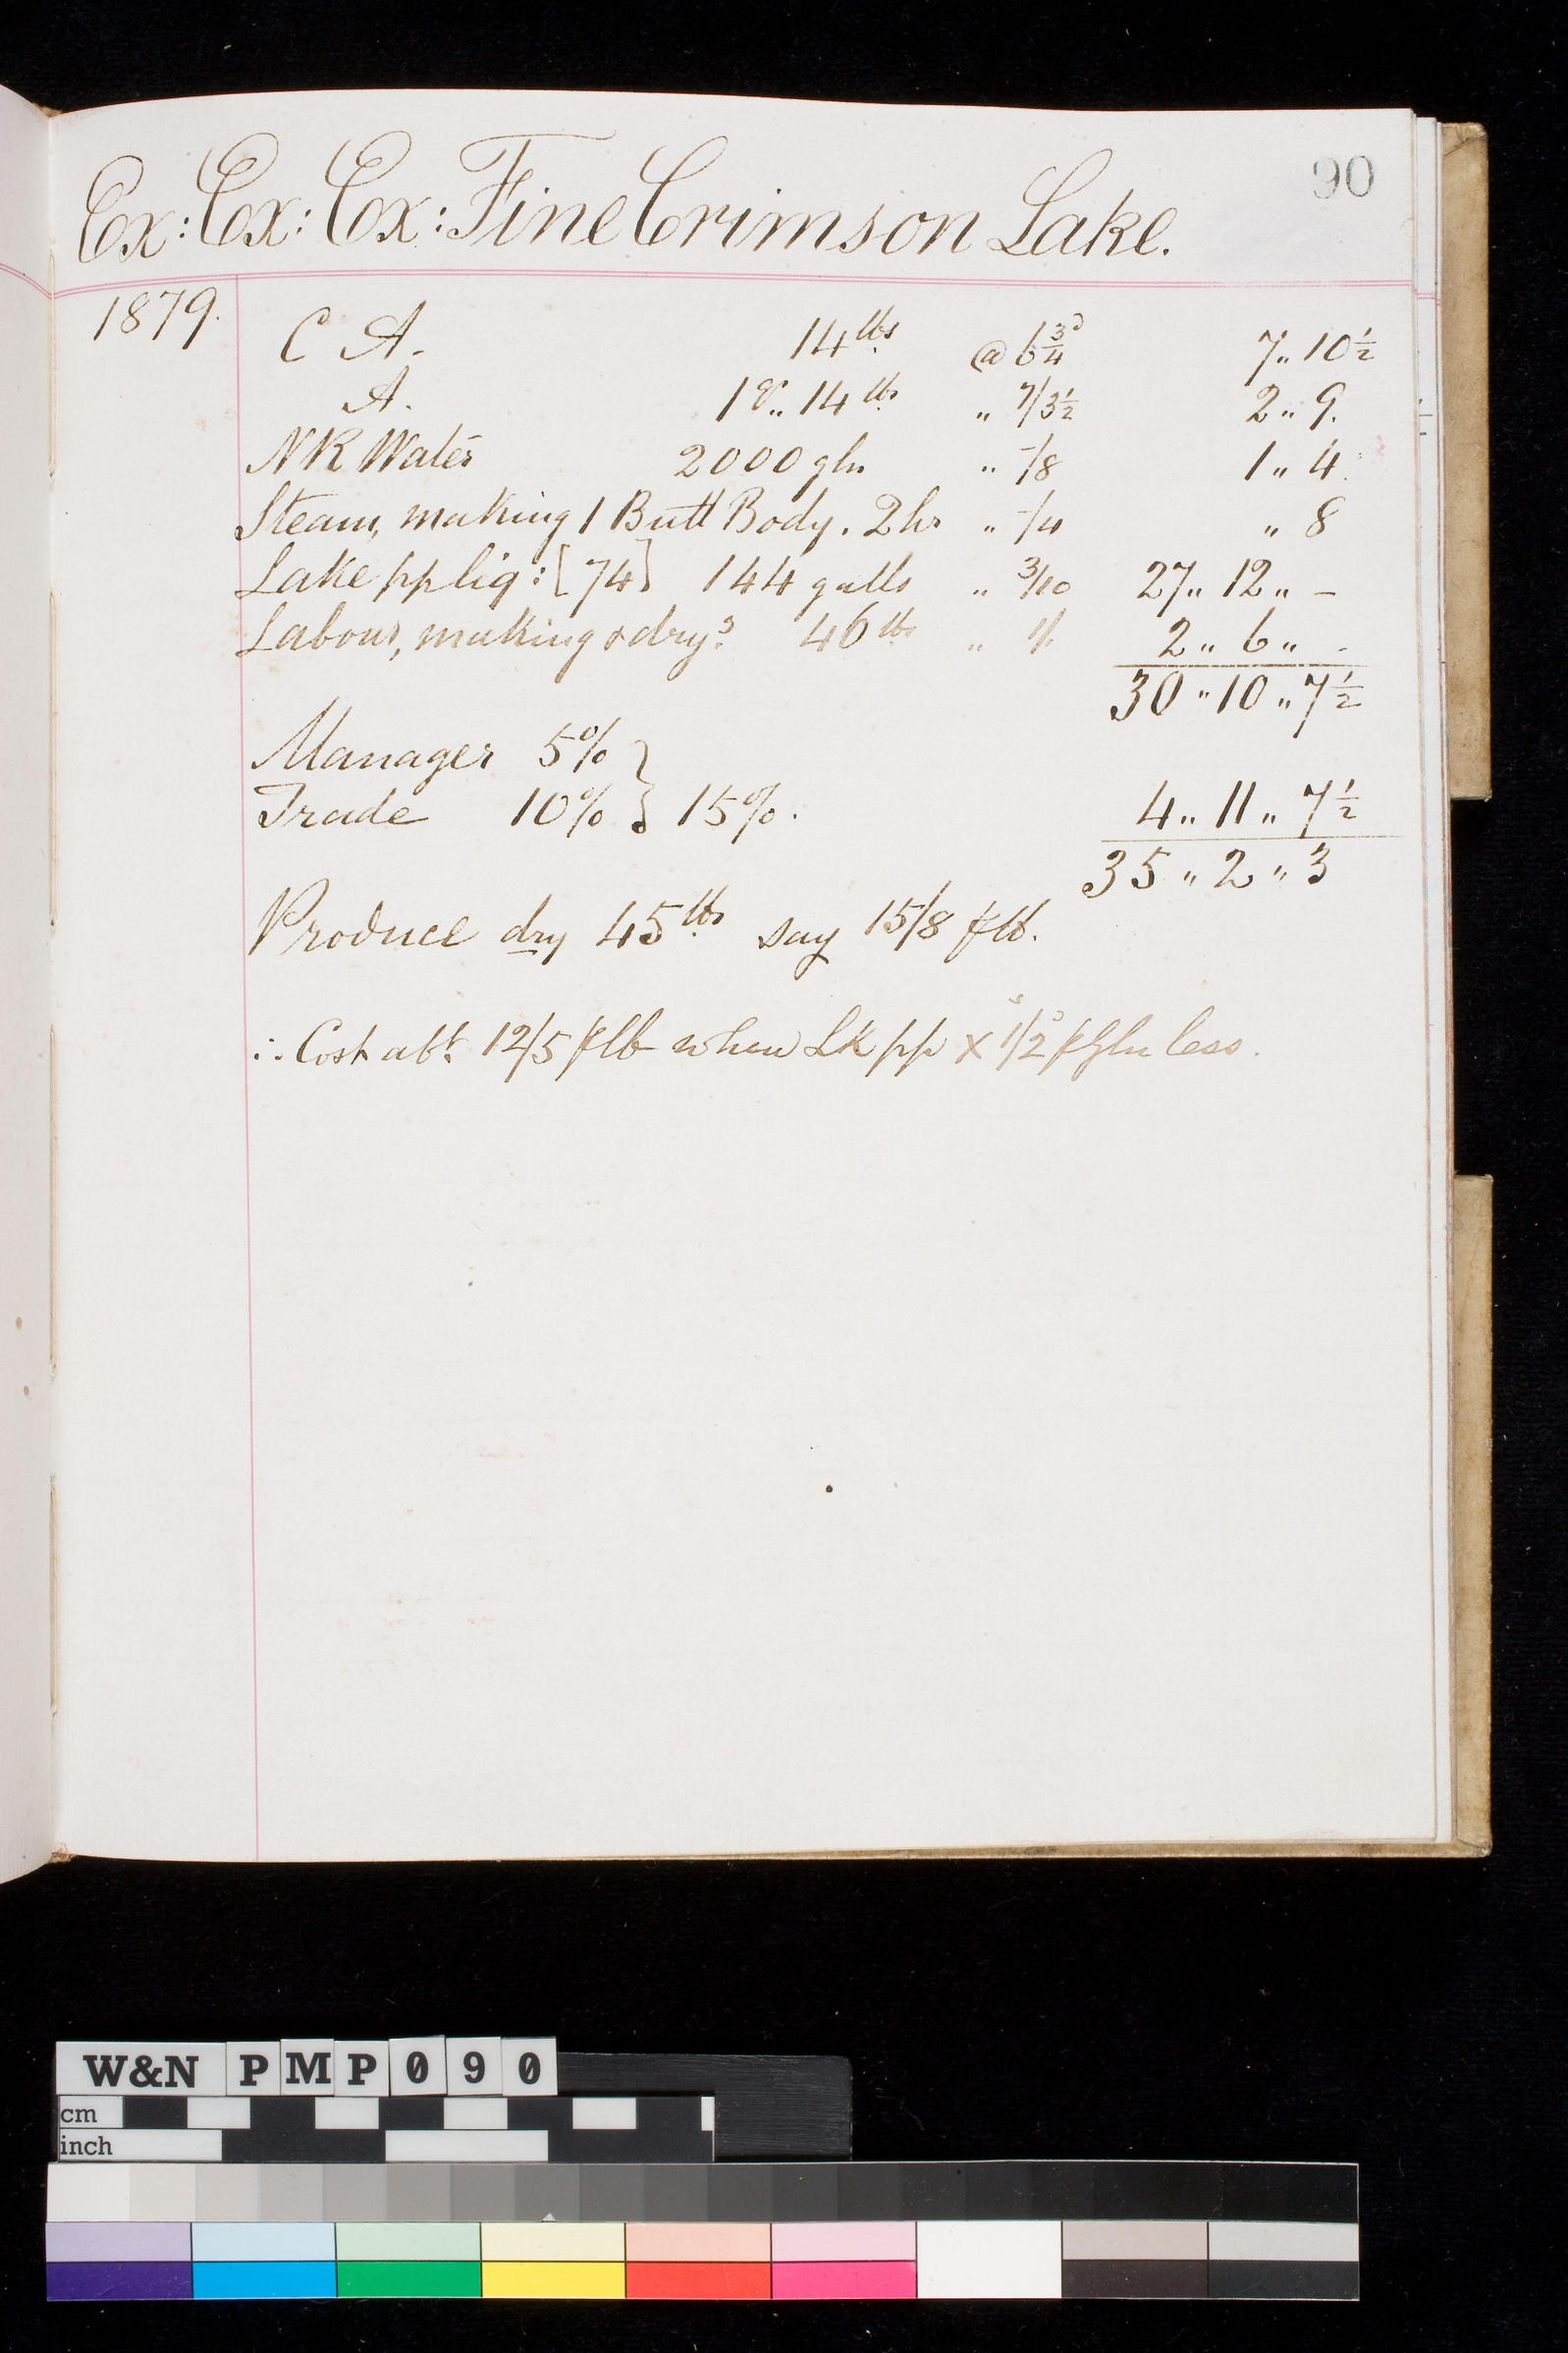 90
Ex: Ex: Ex: Fine Crimson Lake.
1879. C A. 14 lbs @ 6 3/4 d 7 „ 10 1/2
A. 1 qr „ 14 lbs „ 7/3 1/2 2 „ 9.
NR Water 2000 glns „ -/8 1 „ 4.
Steam, making 1 Butt Body. 2 hrs „ -/4 „ 8
Lake pp liq: [74] 144 galls „ 3/10 27 „ 12 „ -
Labour, making & dryg 46 lbs „ 1/- 2 „ 6 „ -
30 „ 10 „ 7 1/2
Manager 5% }
Trade 10% } 15%. 4 „ 11 „ 7 1/2
35 „ 2 „ 3
Produce dry 45 lbs say 15/8 p lb.
∴ Cost abt 12/5 p lb when Lk pp x 1/2 p gln less.
W&N PMP090
cm
inch